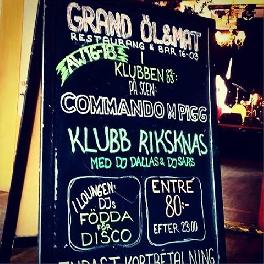 GRAND ÖL & MAT
RESTAURANG & BAR 16-03
KLUBBEN
PÅ SCEN:
COMMANDO M PIGG
KLUBB RIKSKNAS
MED DJ DALLAS & DJ SARS
I LOUNGEN:
DJs
FÖDDA
FÖR
DISCO
ENTRÉ
80:-
EFTER 23.00
ENDAST KORTBETALNING